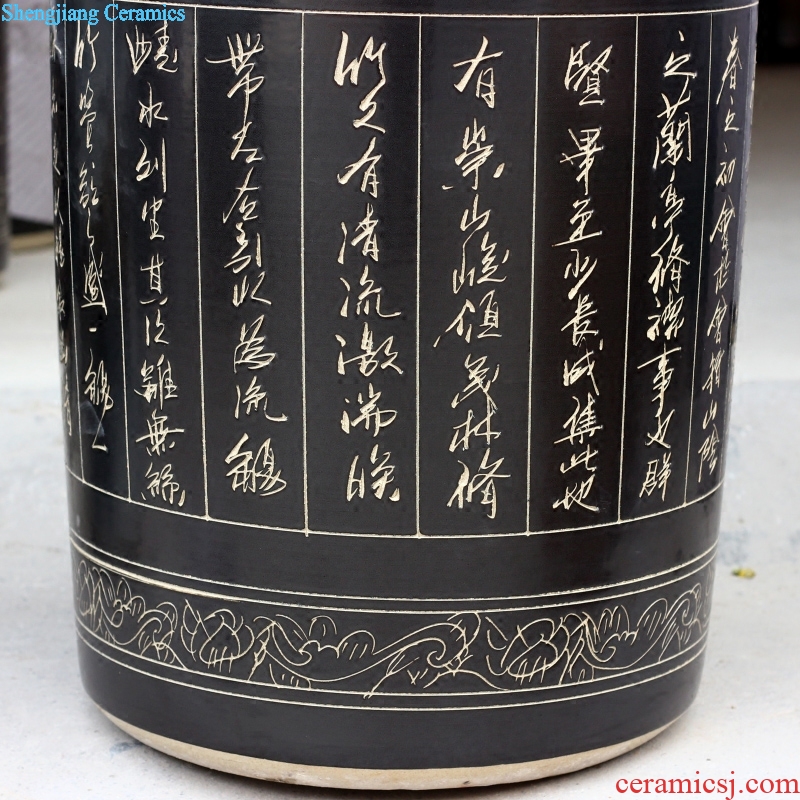 Shengjiang Ceramics
春之初會於會稽山陰
之蘭亭脩禊事也群
賢畢至少長咸集此地
有崇山峻領茂林脩
竹又有清流激湍映
帶左右引以為流觴
曲水列坐其次雖無絲
竹管絃之盛一觴一
ceramicsj.com